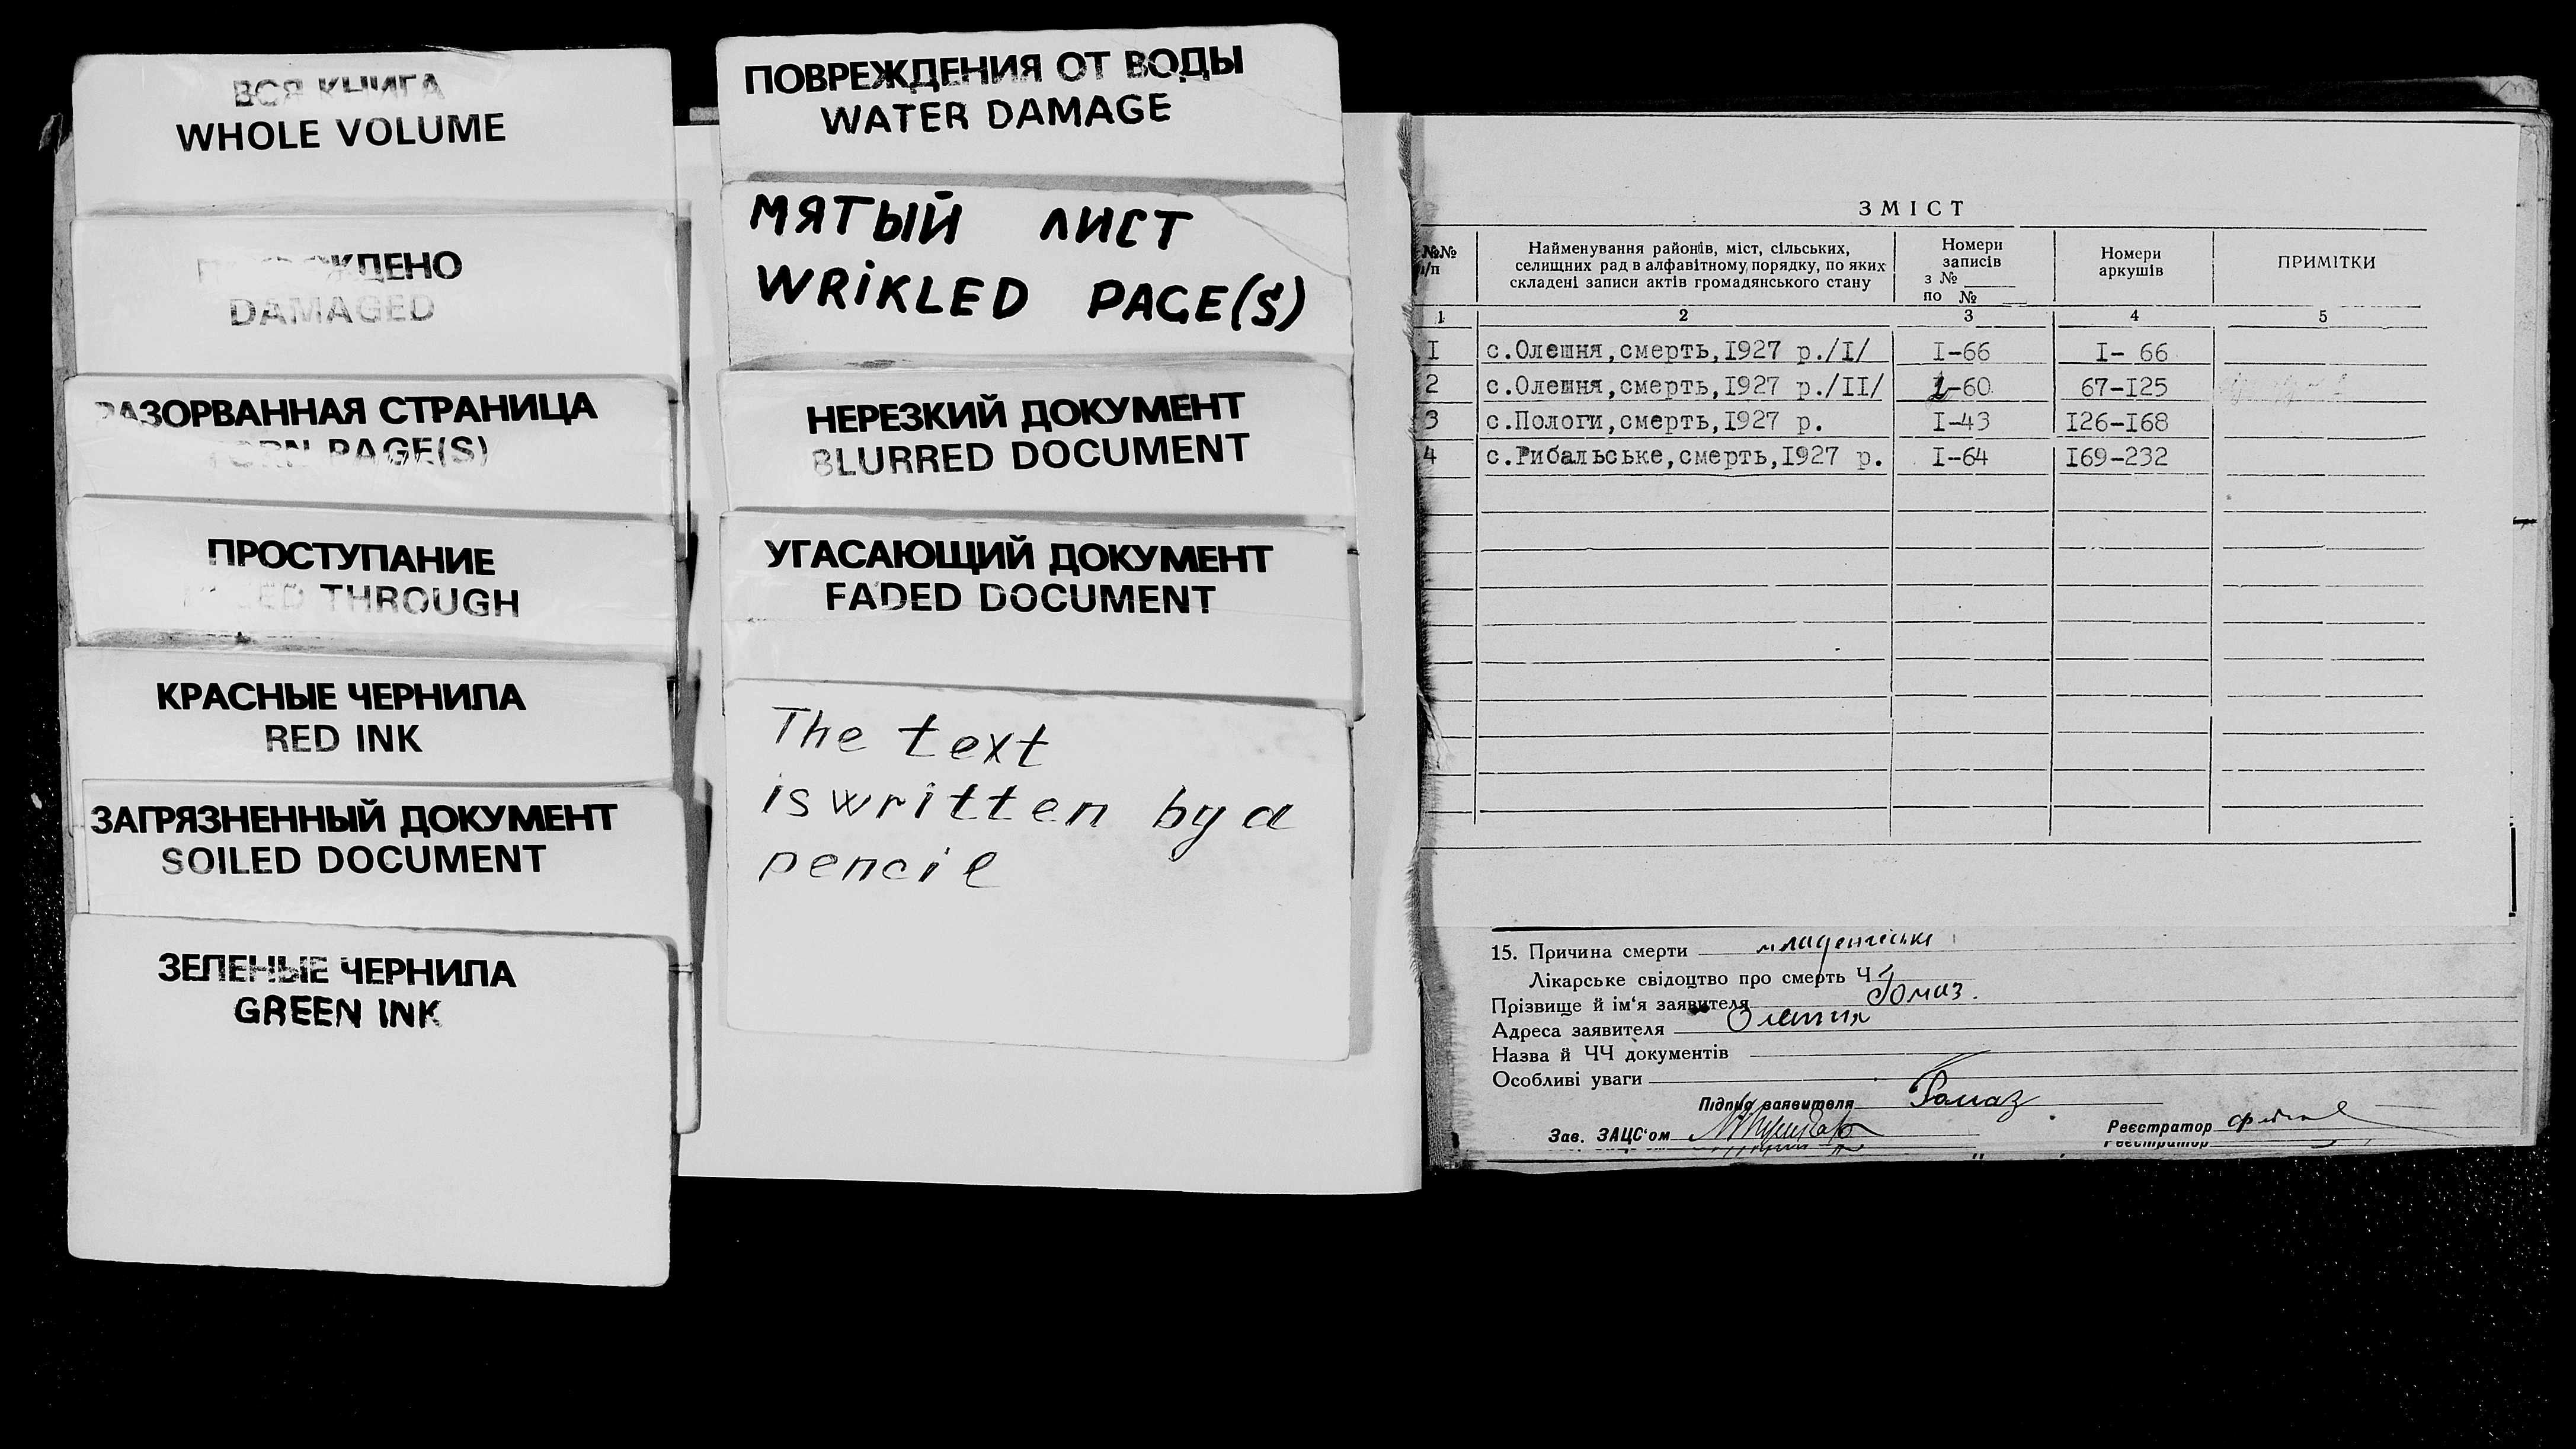 ВСЯ КНИГА
WHOLE VOLUME
ПОВРЕЖДЕНО
DAMAGED
РАЗОРВАННАЯ СТРАНИЦА
TORN PAGE(S)
ПРОСТУПАНИЕ
THROUGH
КРАСНЫЕ ЧЕРНИЛА
RED INK
ЗАГРЯЗНЕННЫЙ ДОКУМЕНТ
SOILED DOCUMENT
ЗЕЛЕНЫЕ ЧЕРНИЛА
GREEN INK
ПОВРЕЖДЕНИЯ ОТ ВОДЫ
WATER DAMAGE
МЯТЫЙ ЛИСТ
WRIKLED PAGE(S)
НЕРЕЗКИЙ ДОКУМЕНТ
BLURRED DOCUMENT
УГАСАЮЩИЙ ДОКУМЕНТ
FADED DOCUMENT
The text
is written by a
pencil
ЗМІСТ
№№ п/п
Найменування районів, міст, сільських,
селищних рад в алфавітному порядку, по яких
складені записи актів громадянського стану
Номери
записів
з №
по №
Номери
аркушів
ПРИМІТКИ
1 2 3 4 5
I с.Олешня,смерть,I927 р./I/ I-66 I- 66
2 с.Олешня,смерть,I927 р./II/ 2-60 67-I25
3 с.Пологи,смерть,I927 р. I-43 I26-I68
4 с.Рибальське,смерть,I927 р. I-64 I69-232
15. Причина смерти
Лікарське свідоцтво про смерть Ч
Прізвище й ім'я заявителя Ромаз.
Адреса заявителя Олешня
Назва й ЧЧ документів
Особливі уваги
Підпис заявителя Ромаз
Зав. ЗАЦС'ом Реєстратор
Реєстратор